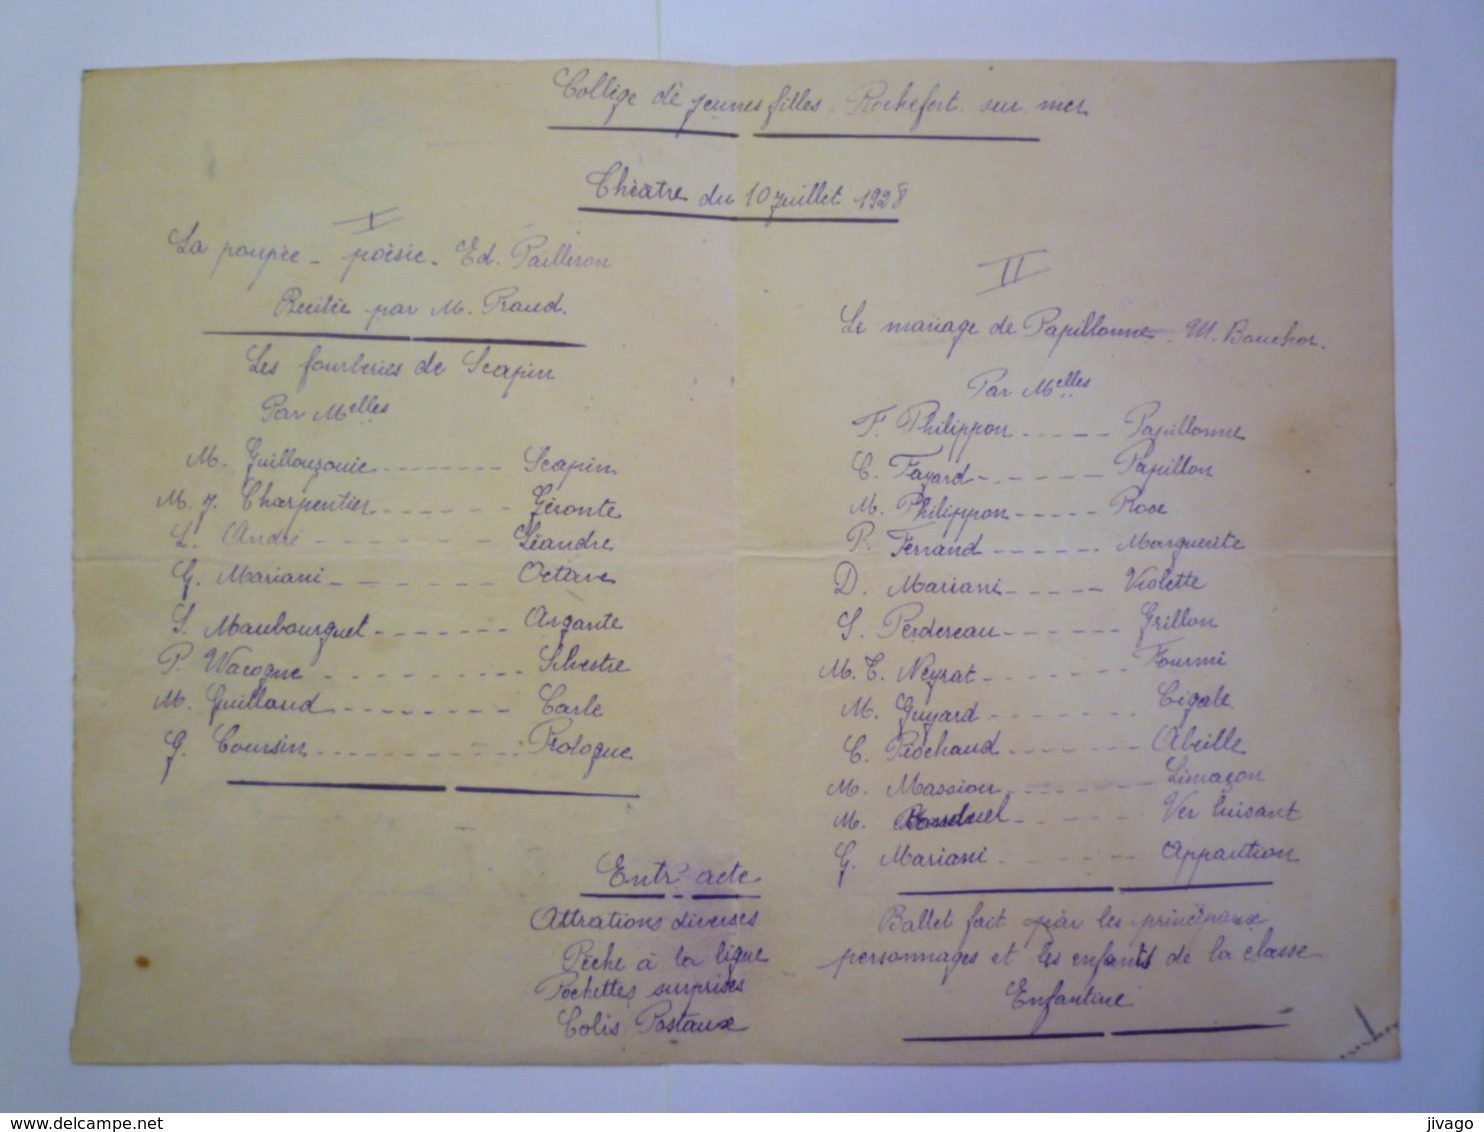 Collège de jeunes filles. Rochefort. sur. mer
Théâtre du 10 Juillet 1928
I
La poupée - poésie - Ed. Pailleron
Récitée par M. Praud.
Les fourberies de Scapin
Par Melles
M. Guillouzouic - - - - - - - Scapin
M. J. Charpentier - - - - - - Géronte
L. André - - - - - - Léandre
G. Mariani - - - - - - Octave
S. Maubourguet - - - - - - - Argante
P. Wacogne - - - - - - - - - Silvestre
M. Guillaud - - - - - - - - Carle
G. Coursin - - - - - - - - - Prologue
Entr'acte
Attrations diverses
Pêche à la ligne
Pochettes surprises
Colis Postaux
II
Le mariage de Papillonne - M. Bouchor.
Par Melles
F. Philippon - - - - - Papillonne
C. Fayard - - - - - - Papillon
M. Philippon - - - - - Rose
P. Ferrand - - - - - - Marguerite
D. Mariani - - - - - Violette
S. Perdereau - - - - - - Grillon
M. T. Neyrat - - - - - - - Fourmi
M. Guyard - - - - - - - Cigale
C. Piochaud - - - - - - - Abeille
M. Massiou - - - - - - - - Limaçon
M. - - - - - - Ver luisant
G. Mariani - - - - - - - Apparition
Ballet fait par les principaux
personnages et les enfants de la classe
Enfantine
delcampe.net
jivago